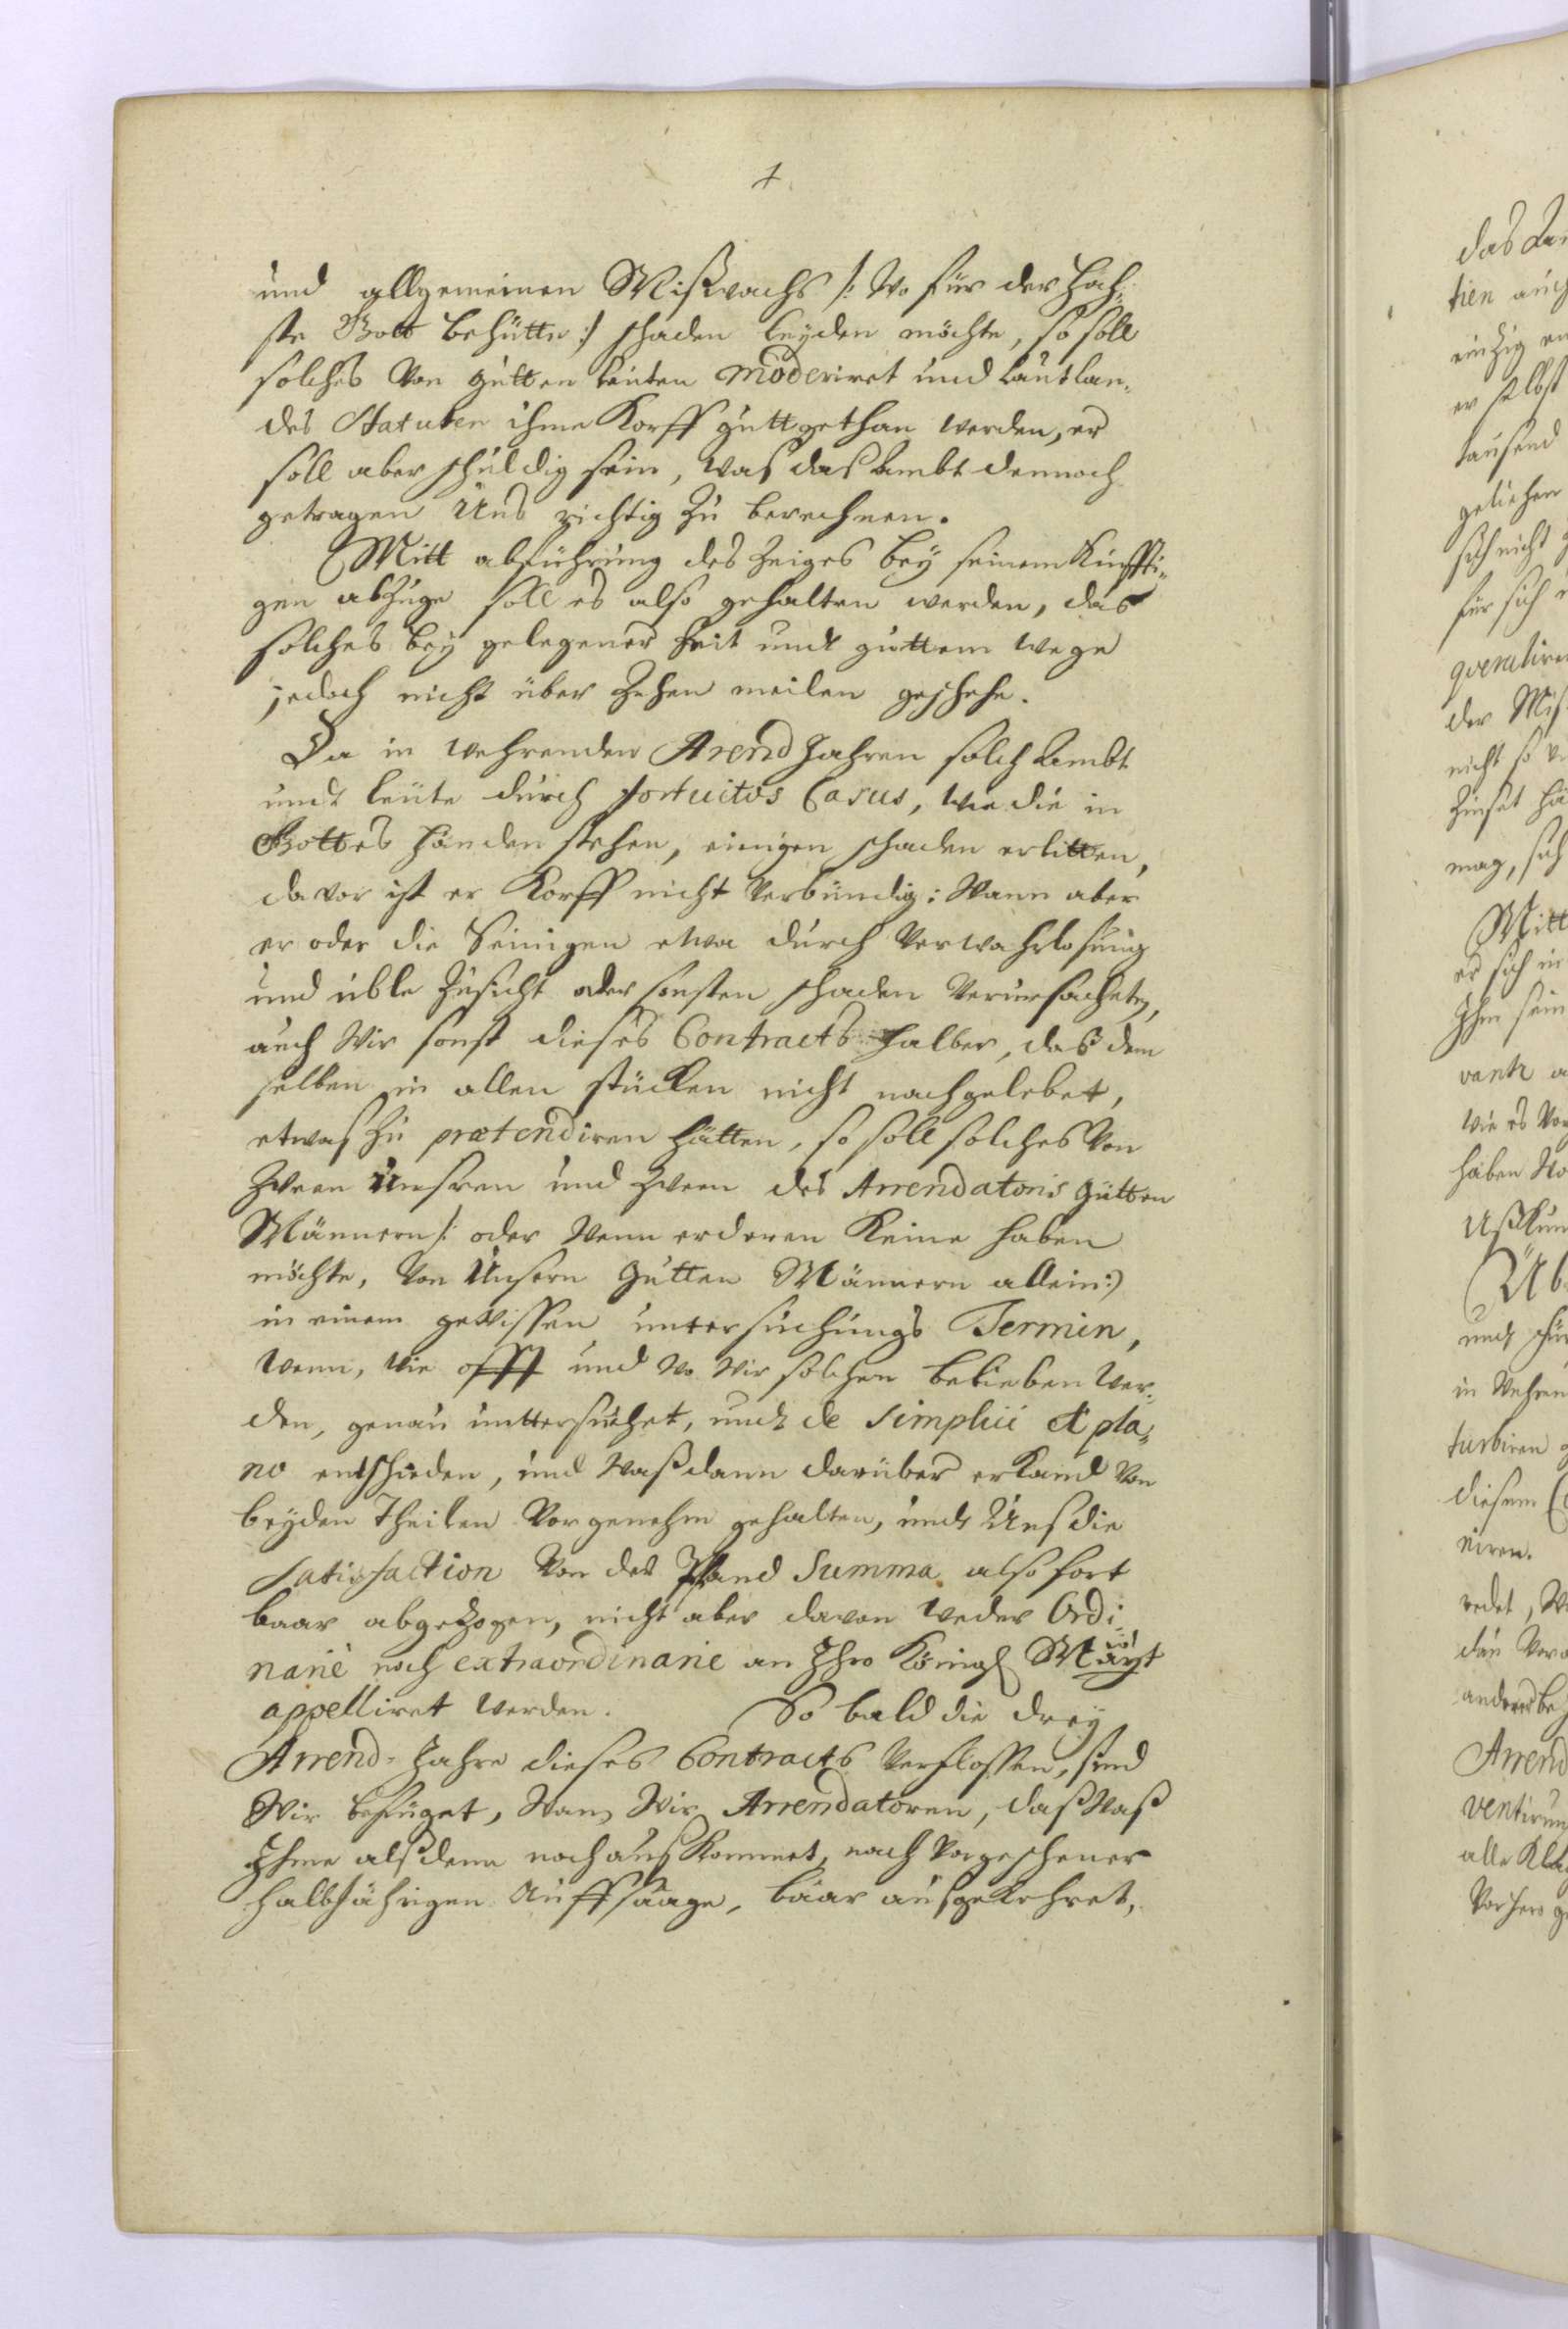 und allgemeinen Mißwachs /: Wo für der Höch-
ste Gott behütte :/ schaden leyden möchte, so soll
solches von gutten leuten moderiret und laut lan-
des Statuten ihme Korff gutt gethan werden, er
soll aber schuldig sein, was das Ambt dennoch
getragen Uns richtig zu berechnen.
Mitt abführung des Zeiges bey seinem künffti-
gen abzuge soll es also gehalten werden, das
solches bey gelegener Zeit undt guttem wege
jedoch nicht über Zehen meilen geschehe.
Da in wehrenden Arend Jahren solch Ambt
undt leüte durch fortuitos Casus, wie die in
Gottes händen stehen, einigen schaden erlitten,
da vor ist er Korff nicht verbündig: Wann aber
er oder die Seinigen etwa durch verwahrlosung
und üble Zusicht oder sonsten schaden verursacheten,
auch Wir sonst dieses Contracts halber, das dem
selben in allen stücken nicht nachgelebet,
etwas zu prætendiren hätten, so soll solches von
Zween Unsren und Zween des Arrendatoris gutten
Männern /: oder Wenn er deren keine haben
möchte, von Unsern gutten Männern allein :/
in einem gewissen untersuchungs Termin,
wenn, wie offt und wo Wir solchen belieben wer-
den, genau unttersuchet, undt de simplici et pla-
no entschieden, und Waß dann darüber erkand von
beyden Theilen vor genehm gehalten, undt Uns die
satisfaction von der Pfand Summa also fort
baar abgezogen, nicht aber davon weder Ordi-
nariè noch extraordinarie an Ihro Königl Mayt
appelliret werden. So bald die drey
Arrend-Jahre dieses Contracts verflossen, sind
Wir befuget, Wann Wir Arrendatoren, daß Waß
Ihme alßdenn noch auß kommet, nach vorgeschener
halbjährigen Auffsaage, baar außgekehret,
das
tien auch
einzig
er selbst
tausend
geliehen
sich nicht
für sich
qverulire
der Miß
nicht so
Zinset
mag, sich
Mitt
er sich
Ihm sein
vantz
wie es
haben
Üb
undt
in Wehren
turbiren
diesem
niren.
redet,
den
anderer
Arrend
ventirung
alle
Vorhero